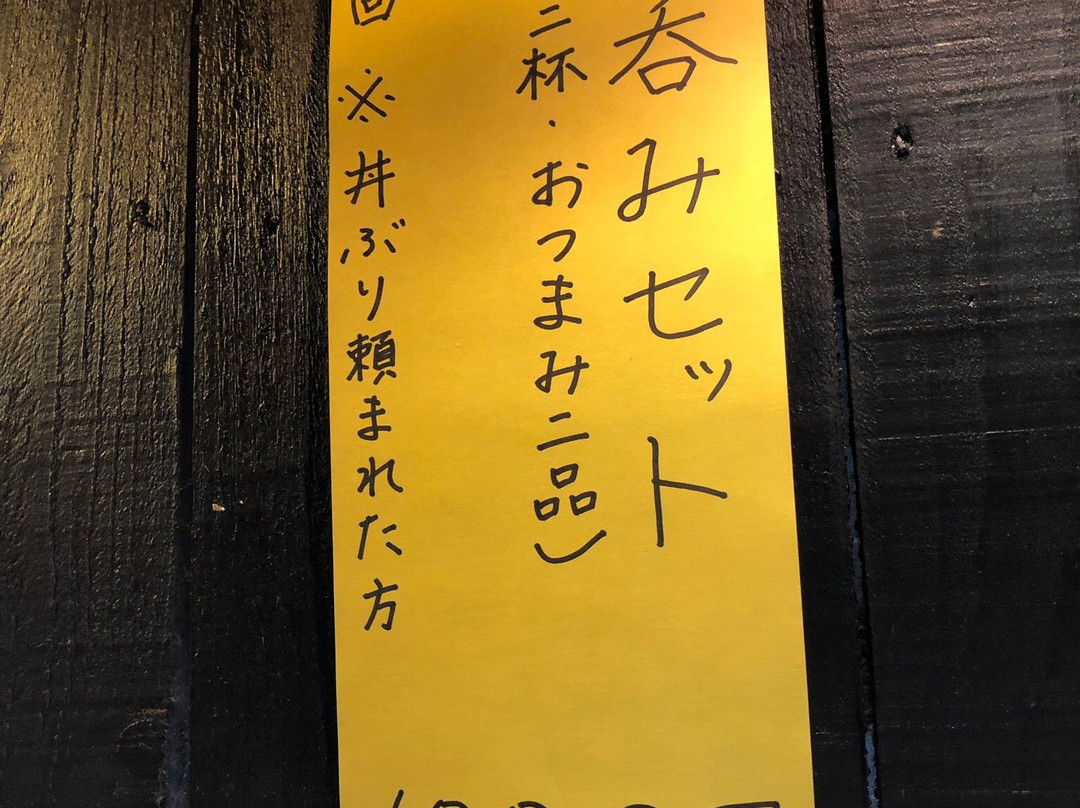 呑みセット
二杯・おつまみ二品)
回 ※丼ぶり頼まれた方